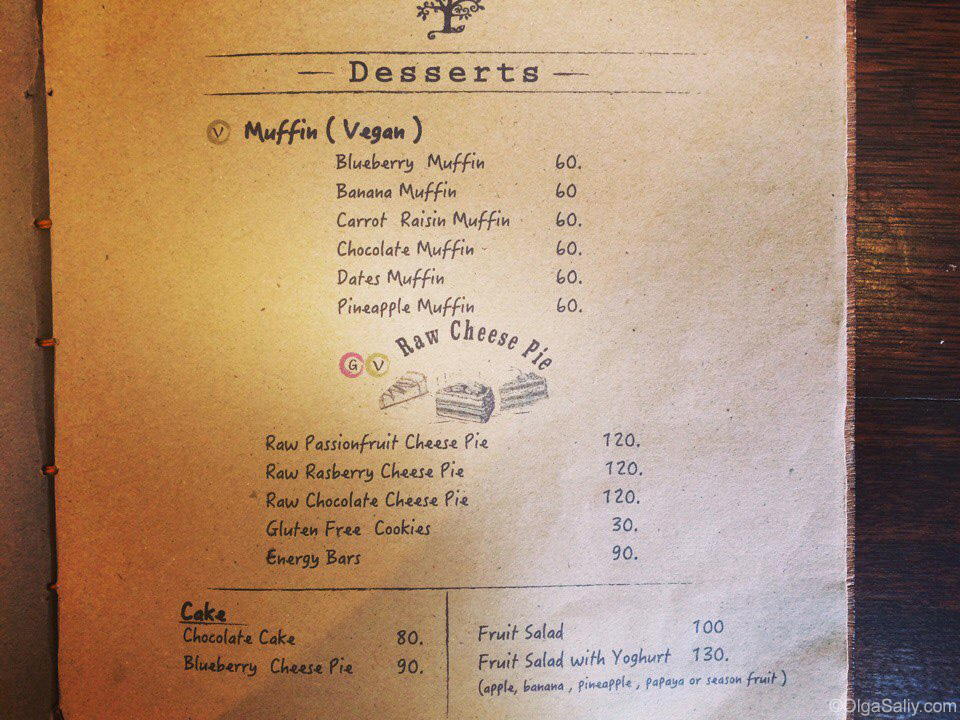 — Desserts —
V Muffin ( Vegan )
Blueberry Muffin 60.
Banana Muffin 60
Carrot Raisin Muffin 60.
Chocolate Muffin 60.
Dates Muffin 60.
Pineapple Muffin 60.
Raw Cheese Pie
G V
Raw Passionfruit Cheese Pie 120.
Raw Rasberry Cheese Pie 120.
Raw Chocolate Cheese Pie 120.
Gluten Free Cookies 30.
Energy Bars 90.
Cake
Chocolate Cake 80.
Blueberry Cheese Pie 90.
Fruit Salad 100
Fruit Salad with Yoghurt 130.
(apple, banana , pineapple , papaya or season fruit )
©OlgaSally.com